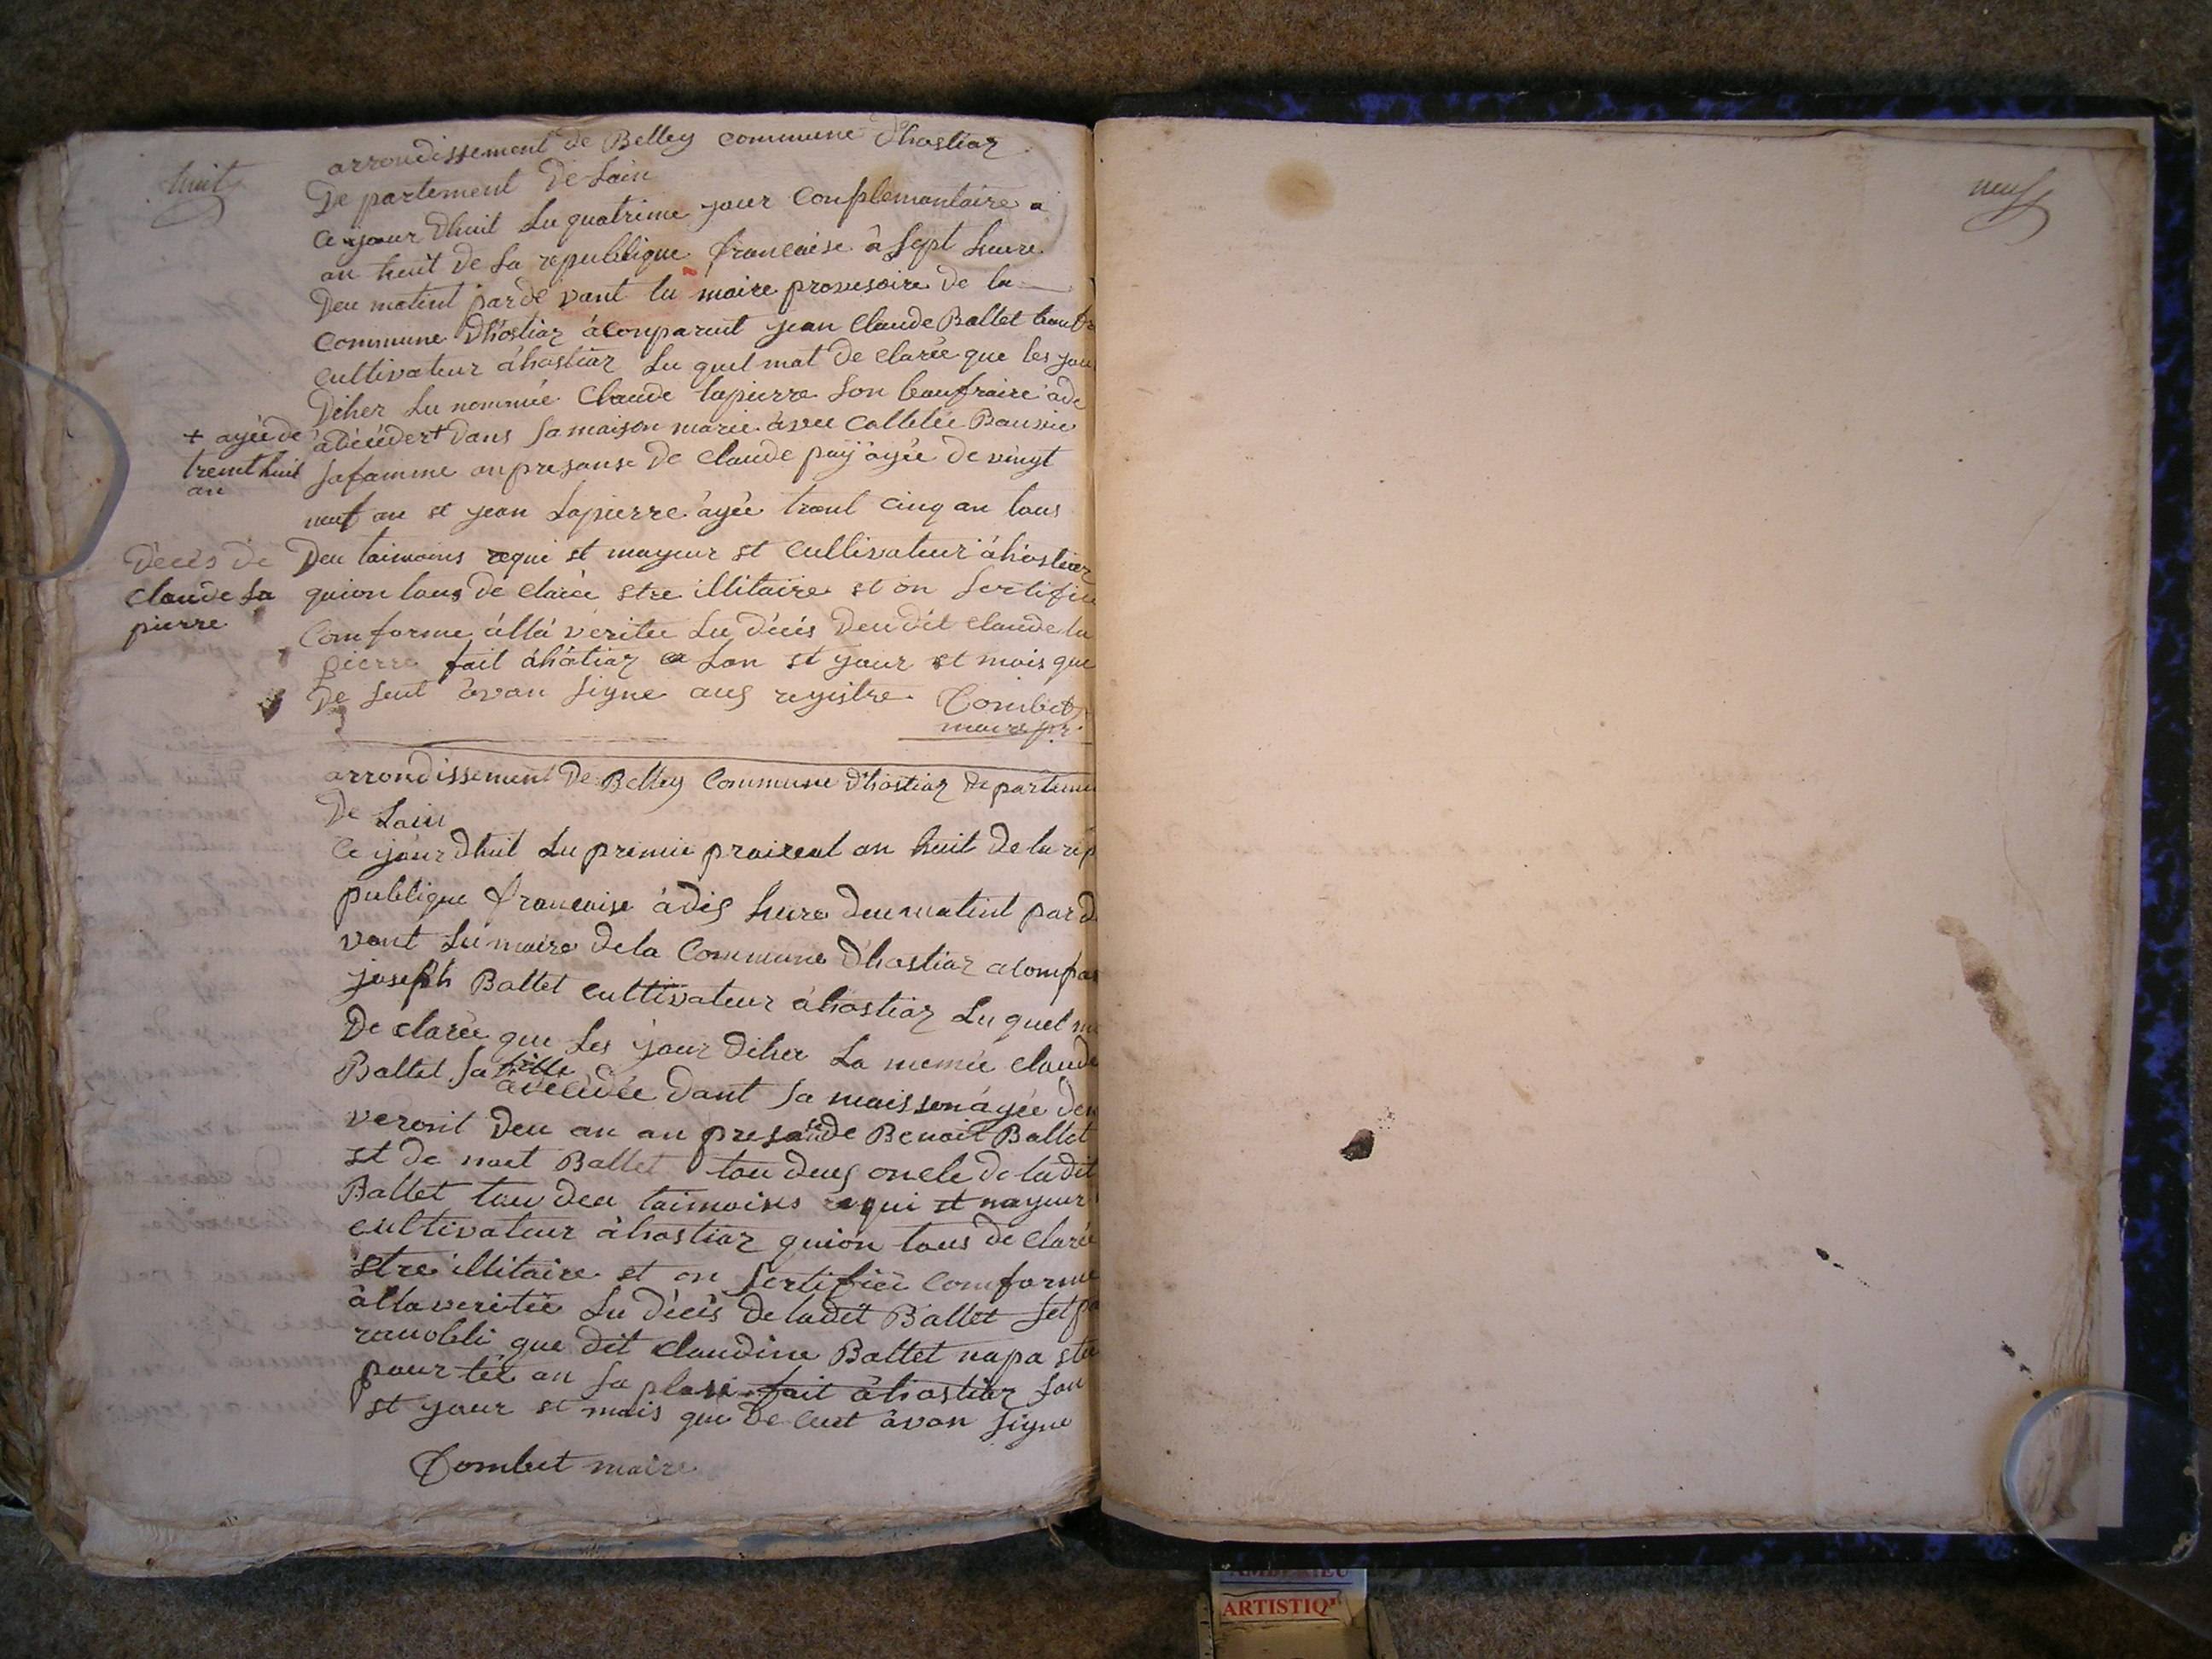 huit
arrondissement de Belley commune dhostiaz
De partement De Lain
Ce jour dhuit Lu quatrime jour Conplemantaire a
an huit de La republique francaise à sept heure
Deu matint par dé vant lu maire provisoire de la
commune dhostiaz àconparut jean Claude Ballet beaufr
cultivateur àhostiaz Lu quel mat de clarée que les jou
Diher Lu nommée Claude lapierre son beaufraire ade
àdécéder + Dans sa maison marie avec
+ agée de
trentt huit
an
safamme an presanse De Claude pay àgée De vingt
neuf an st jean Lapierre àgée trant cinq an tous
Decés de
Claude La
pierre
Deu taimoins requi st mayeur st Cultivateur àhostiaz
quion tous de clarée stre illitaire st on sertifiée
Comforme àlla véritée Lu décés Deu dit Claude la
pierre fait àhotiaz a Lan st jour st mois que
De seut àvan signe aus registre Combet
maire pr
arrondissement De Belley Commune dhostiaz departeme
De Lain
Ce jour dhuit Lu premie praireal an huit de la ré
publique francaise àdis heure deu matint par d
vant Lu maire de la Commune dhostiaz acompar
joseph Ballet cultivateur àhostiaz Lu quel m
De clarée que Les jour diher La nomée claude
Ballet sa fille
àdécédée Dant sa maisson àgée den
veront Deu an an presanse de Benoit Ballet
st de Ballet tou deus oncle de ladit
Ballet tou deu taimoins requi st mayeur
cultivateur àhostiaz quion tous de clarée
stre illitaire st on sertifiée Comforme
àlla veritée Lu décés De ladit Ballet
que dit Claudine Ballet napa sta
pour tée an sa plase fait àhostiaz Lan
st jour st mois que De ceut àvan signe
Combet maire
neuf
AMBERIEU
ARTISTIQ